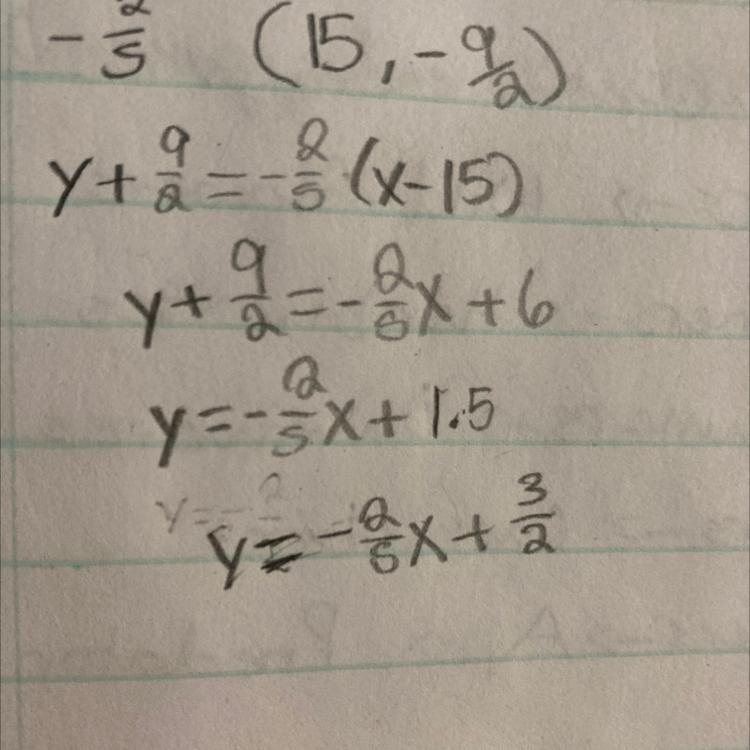 -2/5 (15, -9/2)
y + 9/2 = -2/5 (x - 15)
y + 9/2 = -2/5 x + 6
y = -2/5 x + 1.5
y = - 2
y = -2/5 x + 3/2